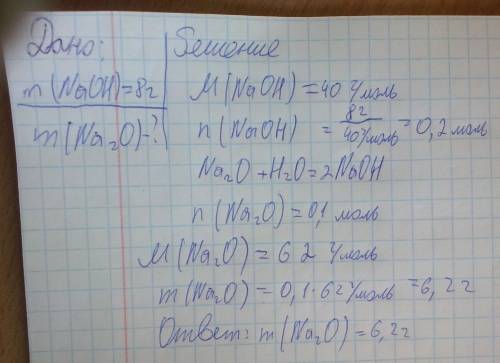 Дано:
m(NaOH)=8г
m(Na₂O)-?
Решение
M(NaOH)=40 г/моль
n(NaOH) = 8г/40г/моль = 0,2 моль
Na₂O+H₂O=2NaOH
n(Na₂O)=0,1 моль
M(Na₂O)=62 г/моль
m(Na₂O)=0,1·62г/моль=6,2г
Ответ: m(Na₂O)=6,2г